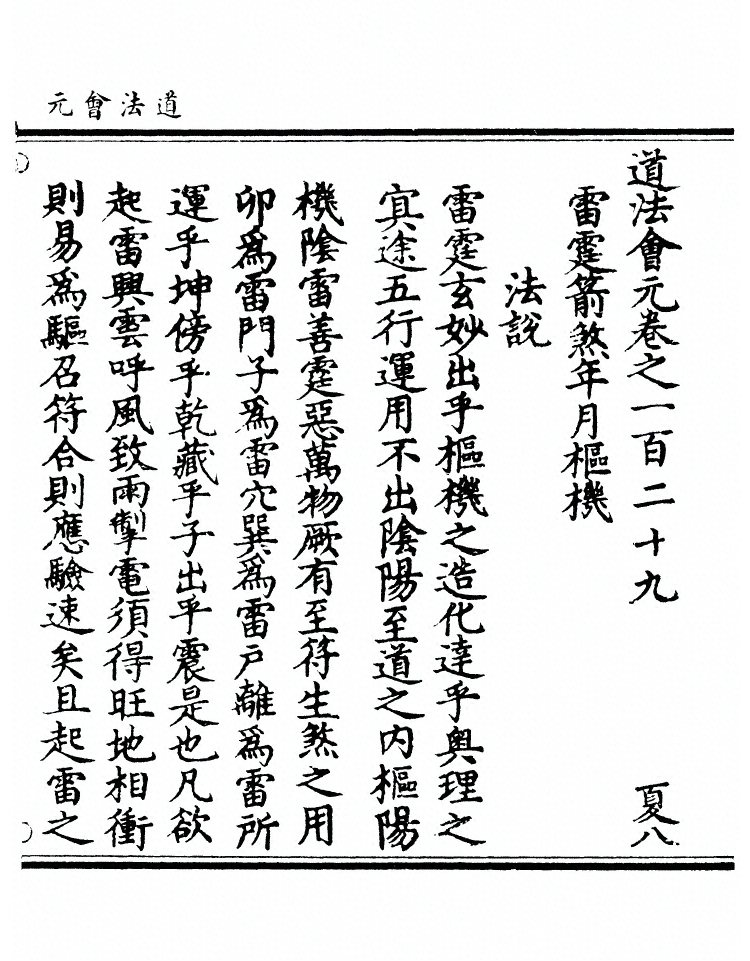 道法會元
道法會元卷之一百二十九 夏八
雷霆箭煞年月樞機
法說
雷霆玄妙出乎樞機之造化達乎奧理之
冥途五行運用不出陰陽至道之內樞陽
機陰雷善霆惡萬物厥有至符生煞之用
卯為雷門子為雷穴巽為雷戶離為雷所
運乎坤傍乎乾藏乎子出乎震是也凡欲
起雷興雲呼風致雨掣電須得旺地相衝
則易為驅召符合則應驗速矣且起雷之